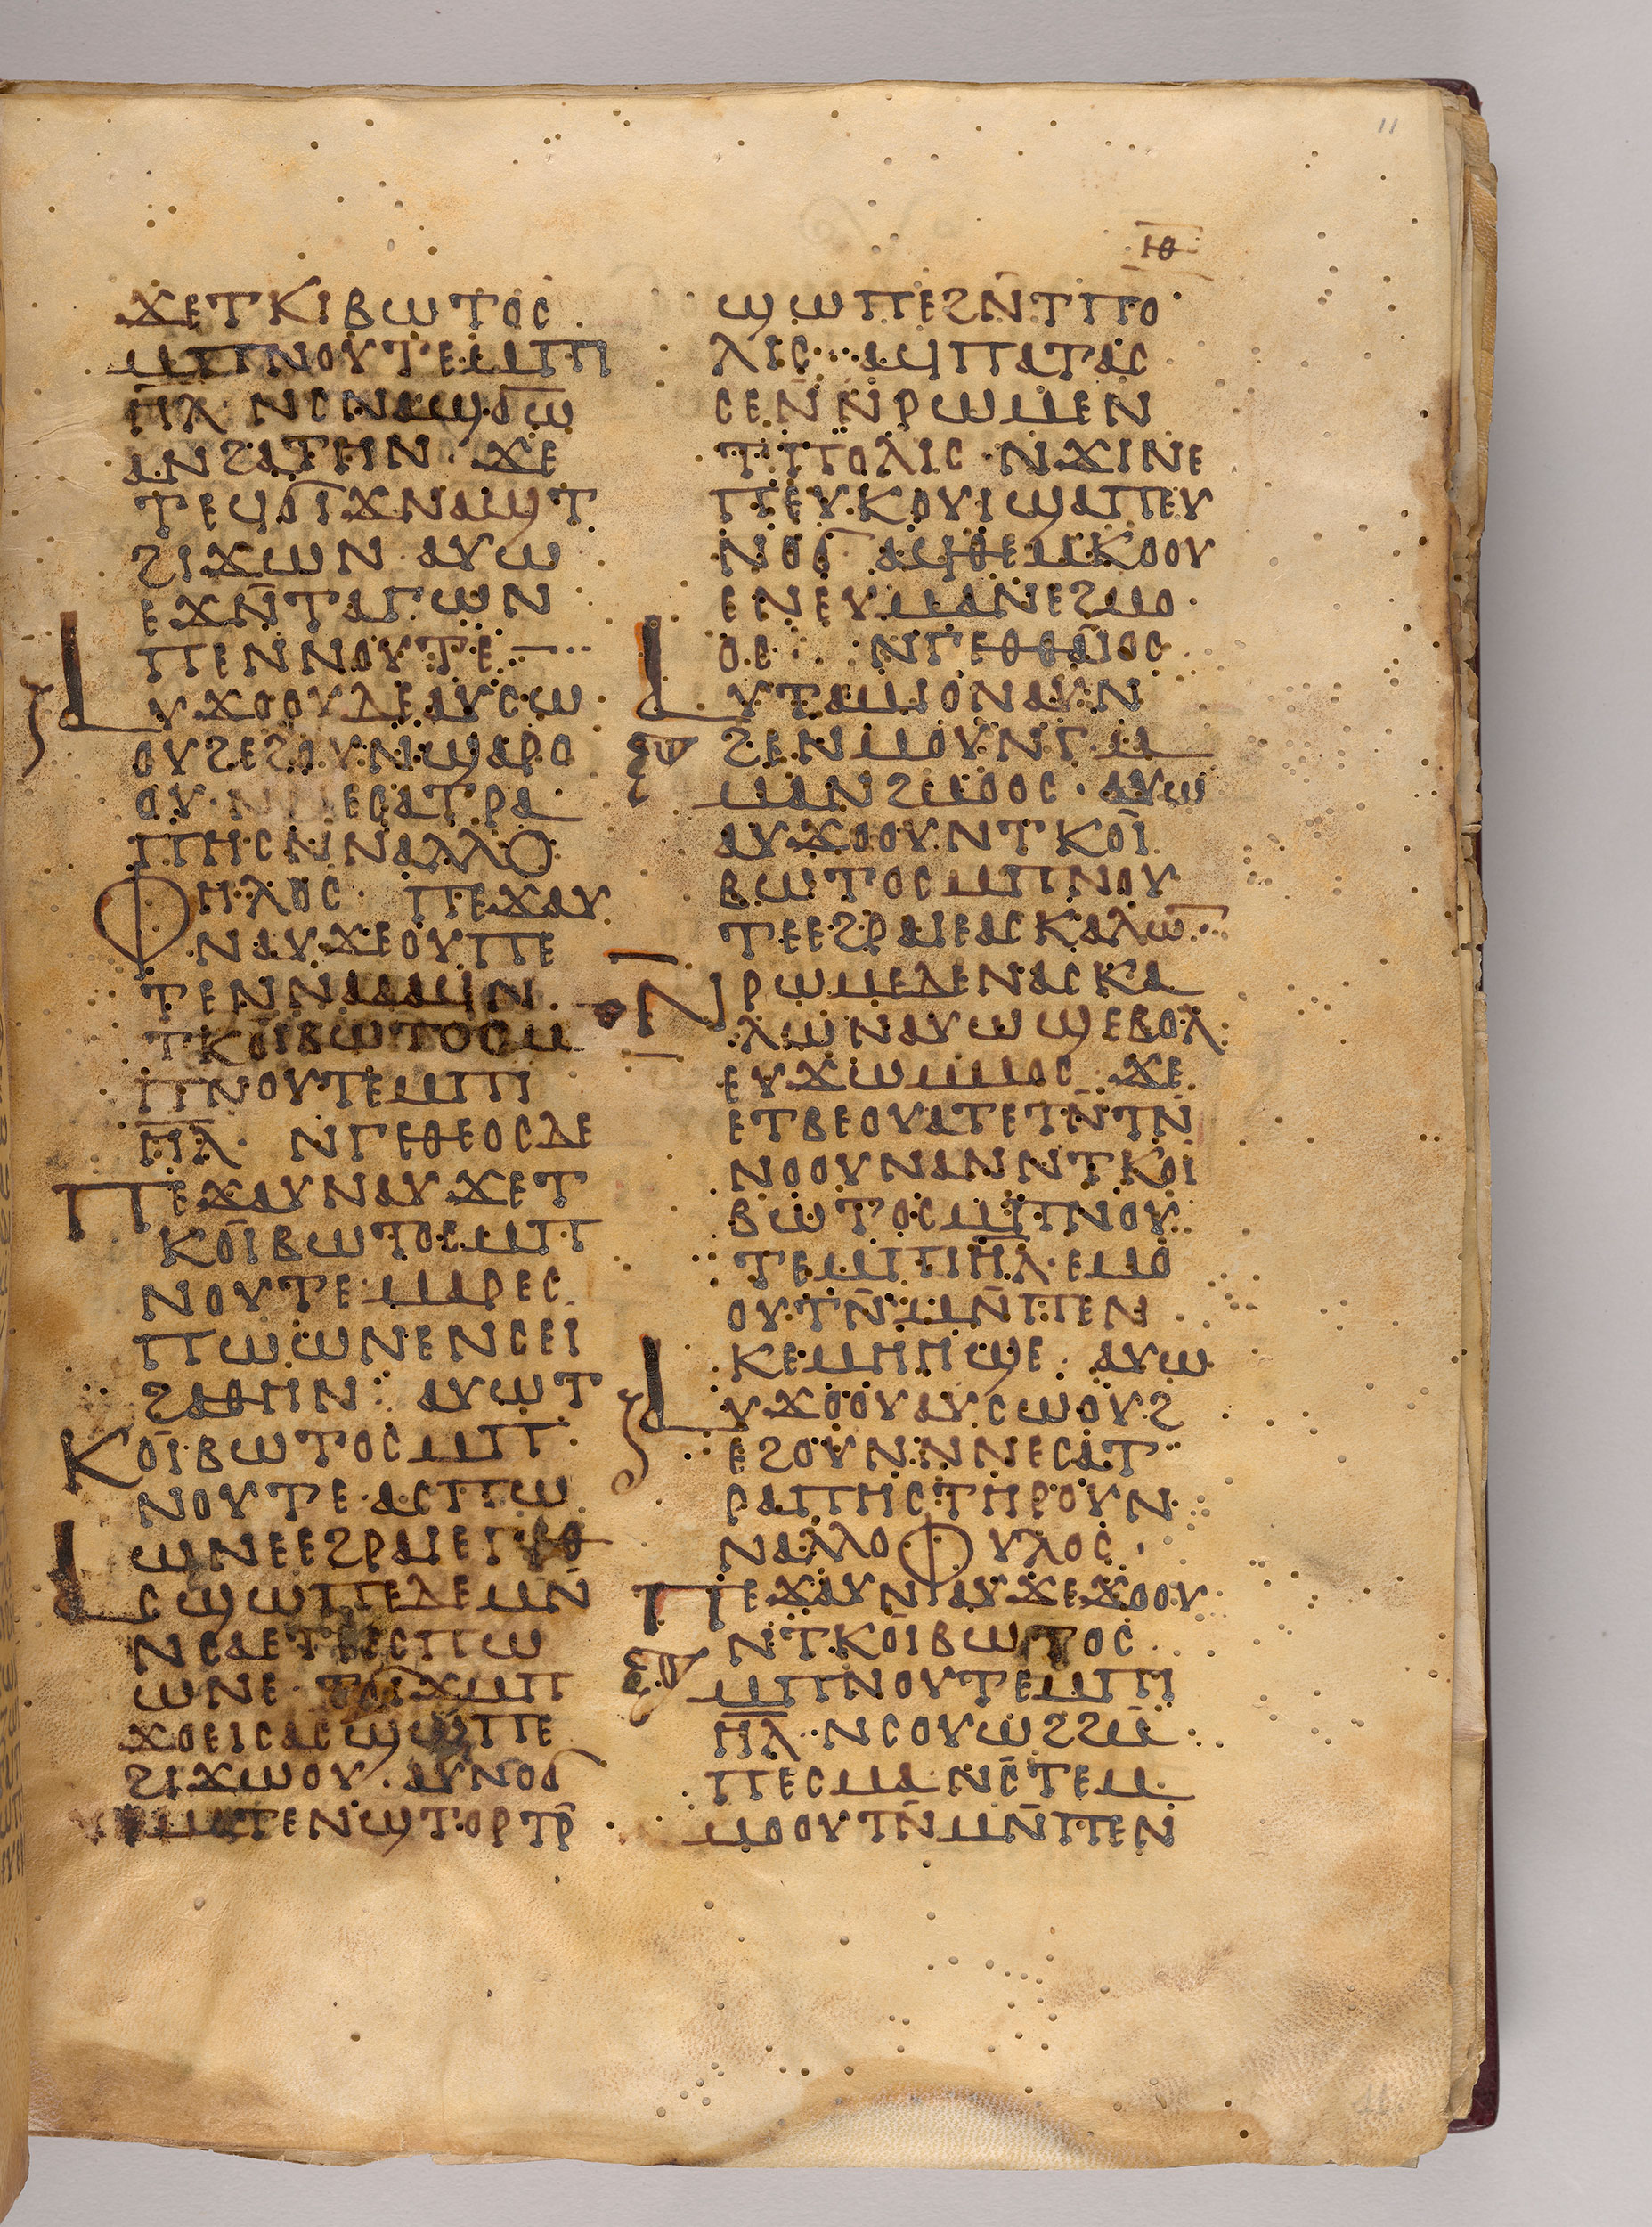 11
ⲓⲑ
ϫⲉⲧⲕⲓⲃⲱⲧⲟⲥ
ⲙⲡⲛⲟⲩⲧⲉⲙⲡⲓ
ⲏⲗ· ⲛⲥⲛⲁϣϭⲱ
ⲁⲛϩⲁⲧⲏⲛ· ϫⲉ
ⲧⲉϥϭⲓϫⲛⲁϣⲧ
ϩⲓϫⲱⲛ ⲁⲩⲱ
ⲉϫⲛ̄ⲧⲁⲅⲱⲛ
ⲡⲉⲛⲛⲟⲩⲧⲉ·
ⲁⲩϫⲟⲟⲩⲇⲉⲁⲩⲥⲱ
ⲟⲩϩⲉϩⲟⲩⲛϣⲁⲣⲟ
ⲟⲩ· ⲉⲥⲁⲧⲣⲁ
ⲡⲏⲥⲛⲛⲁⲗⲗⲟ
ⲫⲏⲗⲟⲥ· ⲡⲉϫⲁⲩ
ⲛⲁⲩϫⲉⲟⲩⲡⲉ
ⲧⲉⲛⲛⲁⲁⲁϥⲛ
ⲧⲕⲟⲓⲃⲱⲧⲟⲥⲙ
ⲡⲛⲟⲩⲧⲉⲙⲡⲓ
ⲏⲗ· ⲛⲅⲉⲑⲉⲟⲥⲇⲉ
ⲡⲉϫⲁⲩⲛⲁⲩϫⲉⲧ
ⲕⲟⲓⲃⲱⲧⲟⲥⲙⲡ
ⲛⲟⲩⲧⲉ·ⲙⲁⲣⲉⲥ
ⲡⲱⲱⲛⲉⲛⲥⲉⲓ
ϩⲁⲑⲏⲛ: ⲁⲩⲱⲧ
ⲕⲟⲓⲃⲱⲧⲟⲥⲙⲡ
ⲛⲟⲩⲧⲉ·ⲁⲥⲡⲱ
ⲱⲛⲉⲉϩⲣⲁⲓⲉⲅⲉⲑ
ⲁⲥϣⲱⲡⲉⲇⲉⲙⲛ̄
ⲛⲥⲁⲉⲧⲣⲉⲥⲡⲱ
ⲱⲛⲉ· ⲧϭⲓϫⲙⲡ
ϫⲟⲉⲓⲥⲁⲥϣⲱⲡⲉ
ϩⲓϫⲱⲟⲩ· ⲁⲩⲛⲟϭ
ⲧⲉⲛϣⲧⲟⲣⲧⲣ̄
ϣⲱⲡⲉϩⲛ̄ⲧⲡⲟ
ⲗⲓⲥ· ⲁϥⲡⲁⲧⲁⲥ
ⲥⲉⲛ̄ⲛ̄ⲣⲱⲙⲉⲛ
ⲧⲡⲟⲗⲓⲥ·ⲛϫⲓⲛⲉ
ⲡⲉⲩⲕⲟⲩⲓϣⲁⲡⲉⲩ
ⲛⲟϭ ⲁϥⲑⲉⲙⲕⲟⲟⲩ
ⲉⲛⲉⲩⲙⲁⲛⲉϩⲙⲟ
ⲟⲥ: ⲛⲅⲉⲑⲑⲁⲓⲟⲥ
ⲁⲩⲧⲁⲙⲓⲟⲛⲁⲩⲛ
ϩⲉⲛⲙⲟⲩⲛⲅⲙ
ⲙⲁⲛϩⲙⲟⲟⲥ· ⲁⲩⲱ
ⲁⲩϫⲟⲟⲩⲛⲧⲕⲟⲓ
ⲃⲱⲧⲟⲥⲙⲡⲛⲟⲩ
ⲧⲉⲉϩⲣⲁⲓⲉⲁⲥⲕⲁⲗⲱ̄
ⲛ̄ⲣⲱⲙⲉⲇⲉⲛⲁⲥⲕⲁ
ⲗⲱⲛⲁⲩⲱϣⲉⲃⲟⲗ
ⲉⲩϫⲱⲙⲙⲟⲥ ϫⲉ
ⲉⲧⲃⲉⲟⲩⲁⲧⲉⲧⲛ̄ⲧⲛ̄
ⲛⲟⲟⲩⲛⲁⲛⲛⲧⲕⲟⲓ
ⲃⲱⲧⲟⲥⲙⲡⲛⲟⲩ
ⲧⲉⲙⲡⲓⲏⲗ·ⲉⲙⲟ
ⲟⲩⲧⲛ̄ⲙⲛ̄ⲡⲉⲛ
ⲕⲉⲙⲏⲏϣⲉ· ⲁⲩⲱ
ⲁⲩϫⲟⲟⲩⲁⲩⲥⲱⲟⲩϩ
ⲉϩⲟⲩⲛⲛⲛⲉⲥⲁⲧ
ⲣⲁⲡⲏⲥⲧⲏⲣⲟⲩⲛ
ⲛⲁⲗⲗⲟⲫⲩⲗⲟⲥ·
ⲡⲉϫⲁⲩⲛⲁⲩϫⲉϫⲟⲟⲩ
ⲛⲧⲕⲟⲓⲃⲱⲧⲟⲥ
ⲙⲡⲛⲟⲩⲧⲉⲙⲡⲓ
ⲏⲗ·ⲛⲥⲟⲩⲱϩϩⲙ̄
ⲡⲉⲥⲙⲁ·ⲛⲥ̄ⲧⲉⲙ
ⲙⲟⲟⲩⲧⲛ̄ⲙⲛ̄ⲡⲉⲛ